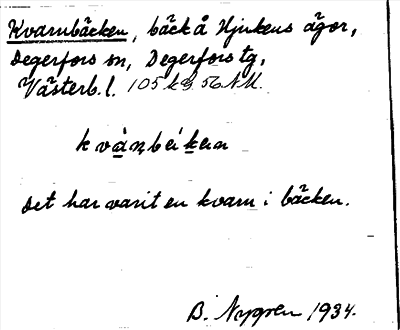 Kvarnbäcken, bäck å Hjukens ägor,
Degerfors sn, Degerfors tg,
Västerb. l. 105 kg. 56 N.M.
kvànbèiken
Det har varit en kvarn i bäcken.
B. Nygren 1934.